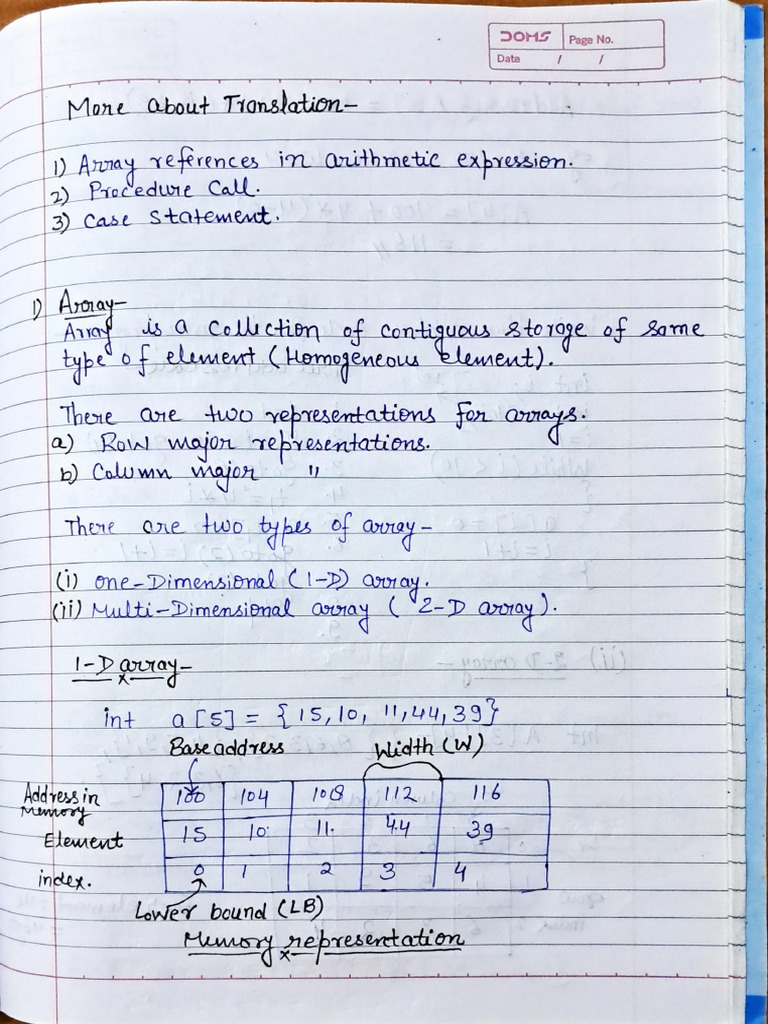 DOMS Page No.
Date / /
More about Translation-
1) Array references in arithmetic expression.
2) Procedure Call.
3) Case Statement.
1) Array-
Array is a collection of contiguous storage of same
type of element (Homogeneous element).
There are two representations for arrays.
a) Row major representations.
b) Column major "
There are two types of array-
(i) one-Dimensional (1-D) array.
(ii) Multi-Dimensional array ( 2-D array).
1-D array-
int a[5] = {15,10, 11,44,39}
Base address Width (W)
Address in Memory 100 104 108 112 116
Element 15 10 11 44 39
index. 0 1 2 3 4
Lower bound (LB)
Memory representation